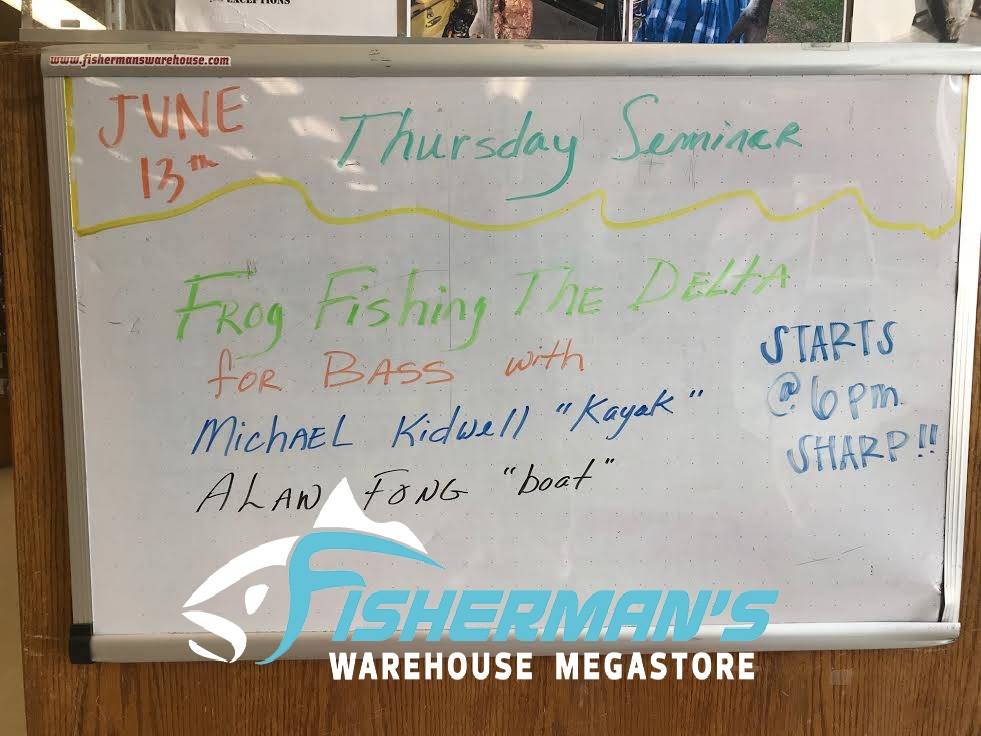 EXCEPTIONS
www.fishermanswarehouse.com
JUNE
13th
Thursday Seminar
Frog Fishing The DELTA
for BASS with
MichAEL Kidwell "Kayak"
ALAN FONG "boat"
STARTS
@ 6pm
SHARP!!
FISHERMAN'S
WAREHOUSE MEGASTORE